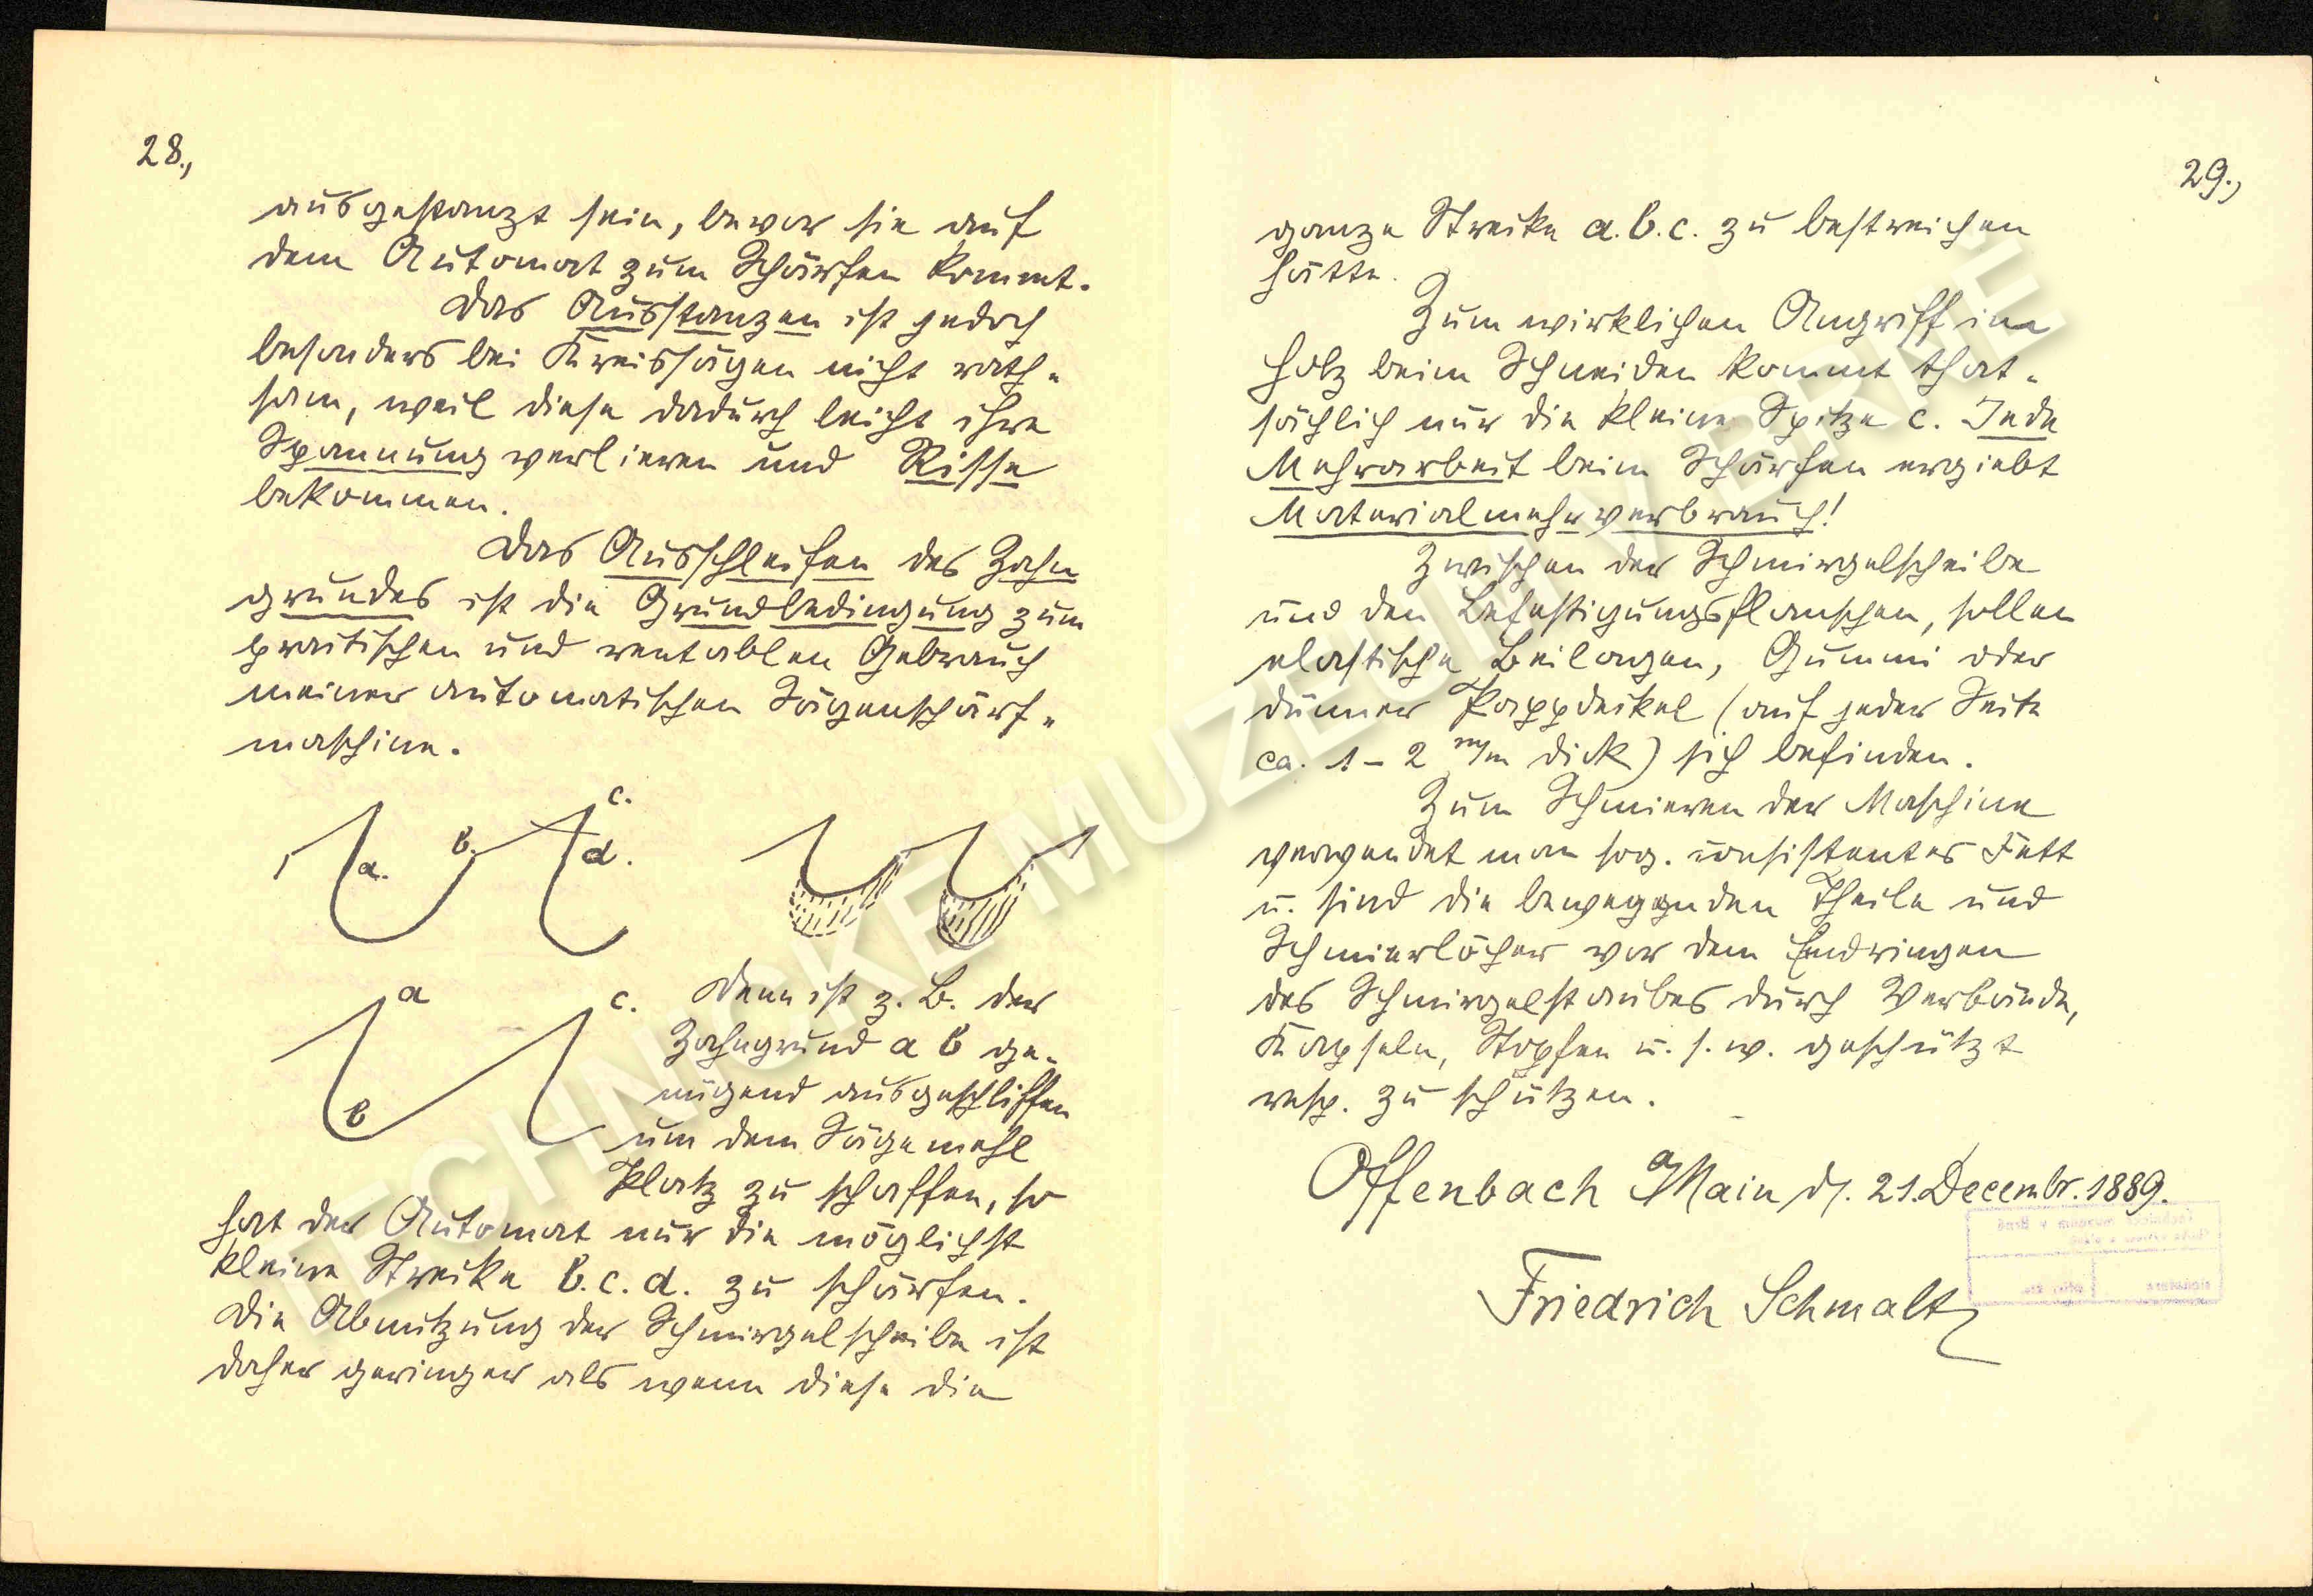 28.,
ausgestanzt sein, bevor sie auf
dem Automat zum Schärfen kommt.
Das Ausstanzen ist jedoch
besonders bei Kreissägen nicht rath-
sam, weil diese dadurch leicht ihre
Spannung verlieren und Risse
bekommen.
Das Ausschleifen des Zahn
grundes ist die Grundbedingung zum
practischen und rentablen Gebrauch
meiner automatischen Sägenschärf-
maschine.
c.
a. b. d.
a c.
b
Denn ist z. B. der
Zahngrund a b ge-
nügend ausgeschliffen
um dem Sägemehl
Platz zu schaffen, so
hat der Automat nur die möglichst
kleine Strecke b. c. d. zu schärfen.
Die Abnutzung der Schmirgelscheibe ist
daher geringer als wenn diese die
29.,
ganze Strecke a. b. c. zu bestreichen
hätte.
Zum wirklichen Angriff im
Holz beim Schneiden kommt that-
sächlich nur die kleine Spitze c. Jede
Mehrarbeit beim Schärfen ergiebt
Materialmehrverbrauch!
Zwischen der Schmirgelscheibe
und den Befestigungsflanschen, sollen
elastische Beilagen, Gummi oder
dünner Pappdeckel (auf jeder Seite
ca. 1 – 2 m/m dick) sich befinden.
Zum Schmieren der Maschine
verwendet man sog. consistentes Fett
u. sind die bewegenden Theile und
Schmierlöcher vor dem Eindringen
des Schmirgelstaubes durch Verbände,
Kapseln, Stopfen u. s. w. geschützt
resp. zu schützen.
Offenbach a Main d. 21. Decembr. 1889.
Friedrich Schmaltz
TECHNICKÉ MUZEUM V BRNĚ